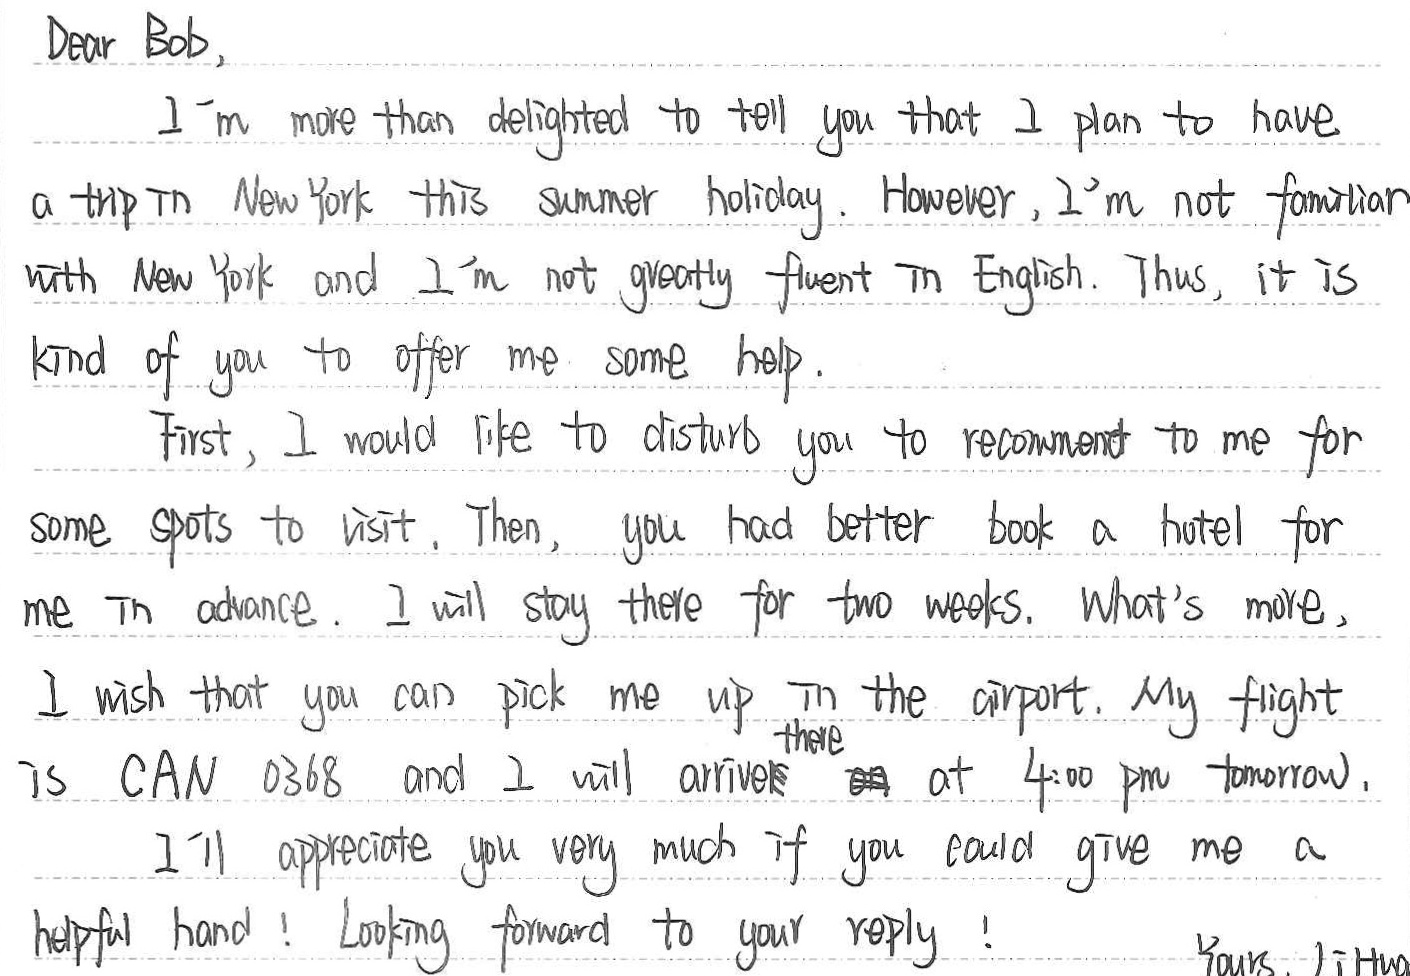 Dear Bob,
I'm more than delighted to tell you that I plan to have
a trip in New York this summer holiday. However, I'm not familiar
with New York and I'm not greatly fluent in English. Thus, it is
kind of you to offer me some help.
First, I would like to disturb you to recommend to me for
some spots to visit. Then, you had better book a hotel for
me in advance. I will stay there for two weeks. What's more,
I wish that you can pick me up in the airport. My flight
there
is CAN 0368 and I will arrive at 4:00 pm tomorrow.
I'll appreciate you very much if you could give me a
helpful hand! Looking forward to your reply!
Yours, Li Hua